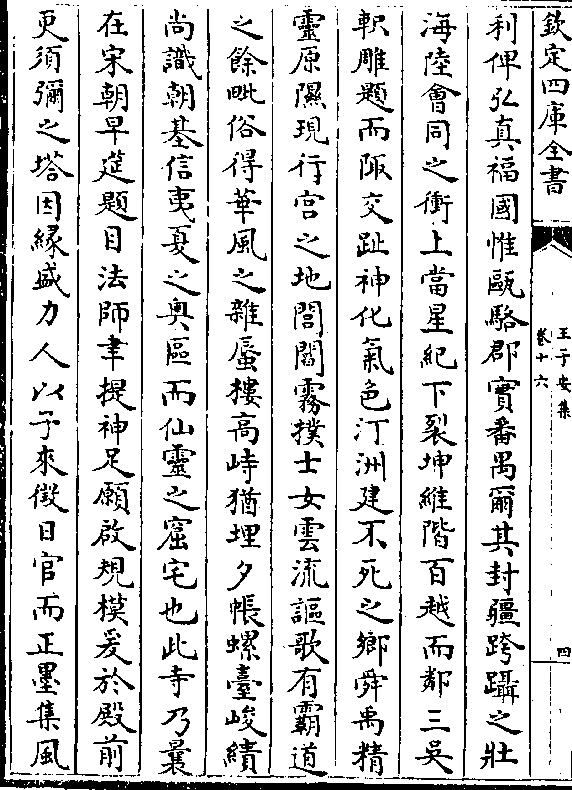 欽定四庫全書
王子安集
卷十六
四
利俾弘真福國惟甌駱郡實番禺爾其封疆跨躡之壯
海陸會同之衝上當星紀下裂坤維階百越而鄰三吳
軹雕題而陬交趾神化氣色汀洲建不死之鄉舜禹精
靈原隰現行宫之地閭閻霧撲士女雲流謳歌有霸道
之餘甿俗得華風之雜蜃樓高峙猶埋夕帳螺臺峻績
尚識朝基信夷夏之奥區而仙靈之窟宅也此寺乃曩
在宋朝早延題目法師聿提神足願啟規模爰於殿前
更須彌之塔因緣盛力人以子來徴日官而正墨集風